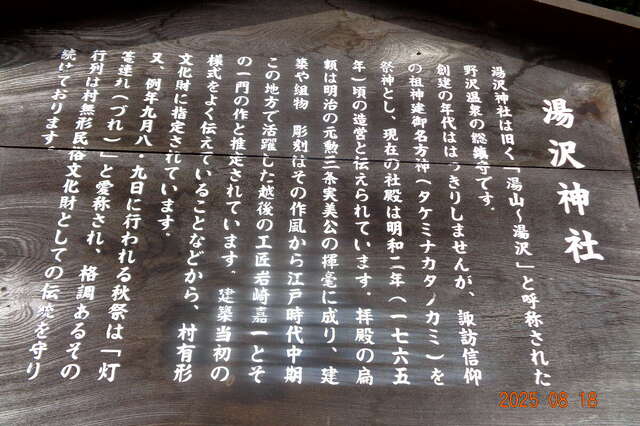 湯沢神社
湯沢神社は旧く「湯山〜湯沢」と呼称された
野沢温泉の総鎮守です。
創建の年代ははっきりしませんが、諏訪信仰
の祖神建御名方神(タケミナカタノカミ)を
祭神とし、現在の社殿は明和二年(一七六五
年)頃の造営と伝えられています。拝殿の扁
額は明治の元勲三条実美公の揮毫に成り、建
築や組物 彫刻はその作風から江戸時代中期
この地方で活躍した越後の工匠岩崎嘉一とそ
の一門の作と推定されています。建築当初の
様式をよく伝えていることなどから、村有形
文化財に指定されています。
又、例年九月八・九日に行われる秋祭は「灯
篭連れ(づれ)」と愛称され、格調あるその
行列は村無形民俗文化財としての伝統を守り
続けております。
2025 08 18